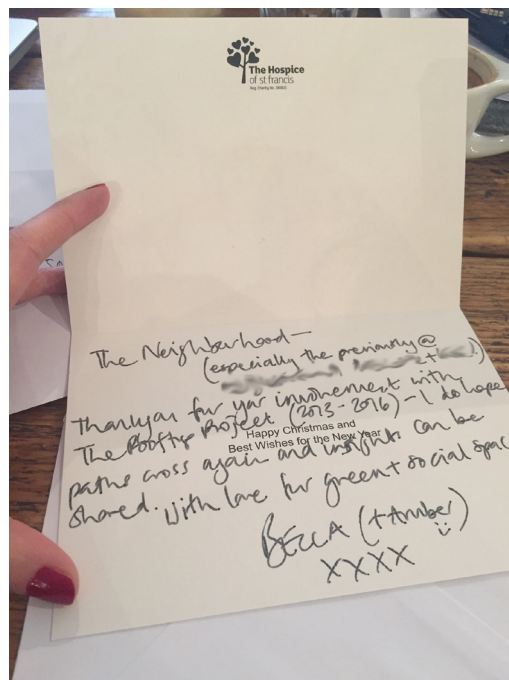 The Hospice
of st francis
Reg. Charity No.
The Neighbourhood —
(especially the previously @
+ .)
Thankyou for your involvement with
The Rooftop Project (2013-2016) - I do hope
Happy Christmas and
Best Wishes for the New Year
paths cross again and insights can be
shared. With love for green + social spac
BELLA (+ Amber)
XXXX